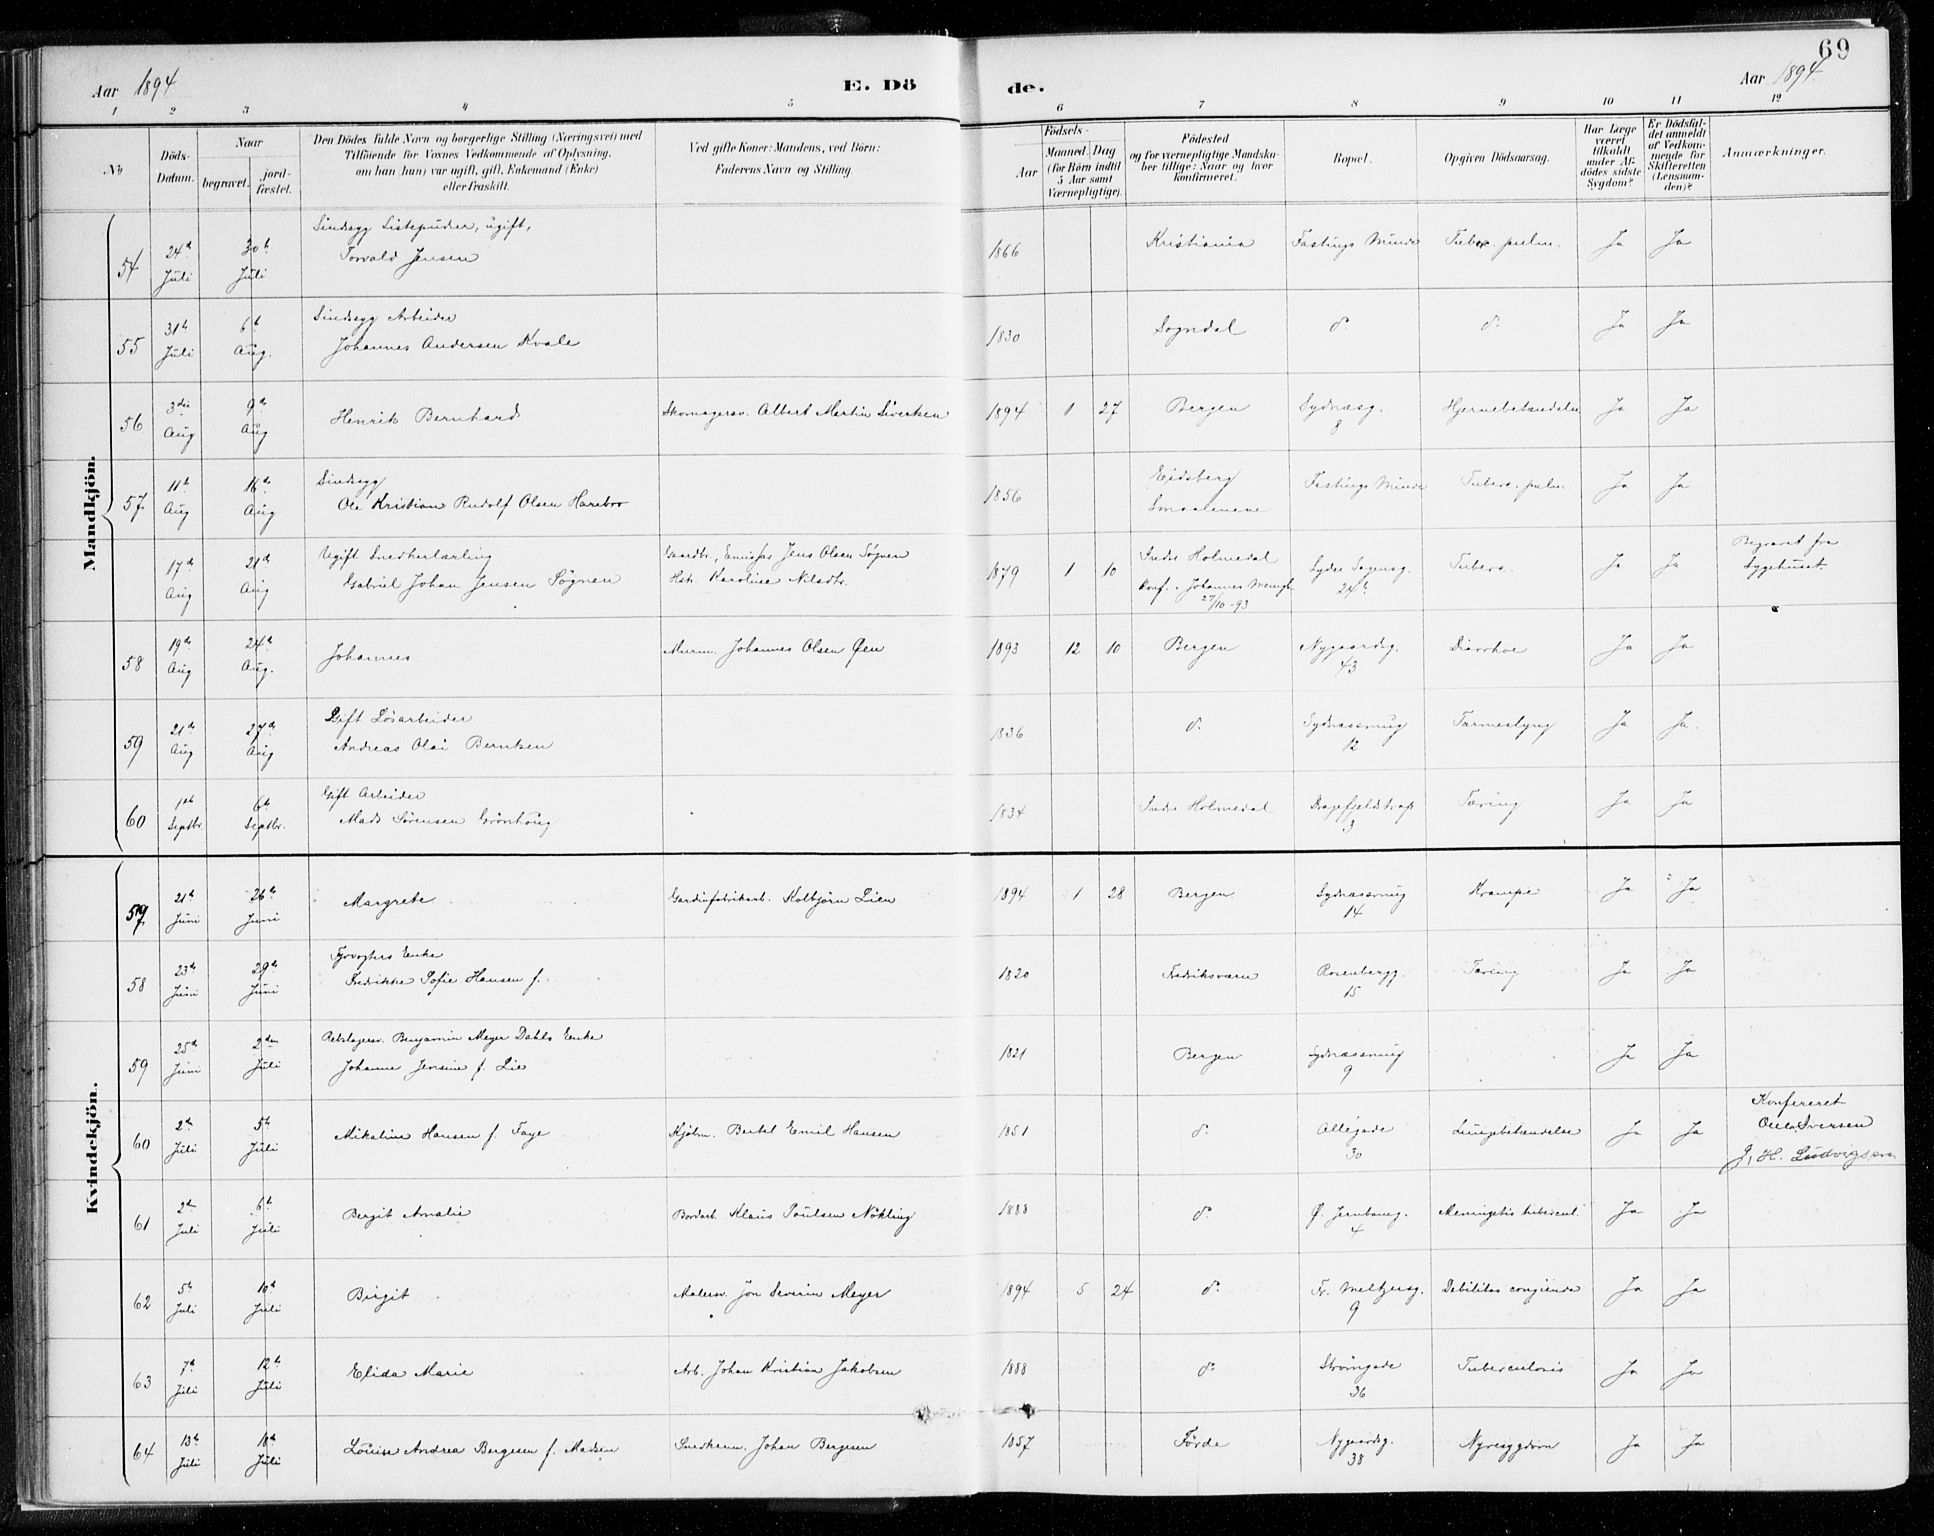 69
Aar 1894
E. Dö
de.
Aar 1894
1 2 3 4 5 6 7 8 9 10 11 12
No
Döds-Datum.
Naar
begravet.
jord-fæstet.
Den Dödes fulde Navn og borgerlige Stilling (Næringsvei) med
Tilföiende for Voxnes Vedkommende af Oplysning,
om han (hun) var ugift, gift, Enkemand (Enke)
eller fraskilt.
Ved gifte Koner: Mandens, ved Börn:
Faderens Navn og Stilling
Födsels-
Aar
Maaned.
Dag
(for Börn indtil
5 Aar samt
Værnepligtige).
Födested
og for værnepligtige Mandska-
ber tillige: Naar og hvor
konfirmeret.
Bopæl.
Opgiven Dödsaarsag.
Har Læge
været
tilkaldt
under Af-
dödes sidste
Sygdom?
Er Dödsfal-
det anmeldt
af Vedkom-
mende for
Skifteretten
(Lensman-
den)?
Anmærkninger.
Mandkjön.
54 24de Juli 30te Juli Sindssyg Listepudser, ugift,
Torvald Jensen 1866 Kristiania Fastings Minde Tuberc. pulm. Ja Ja
55 31te Juli 6te Aug. Sindssyg Arbeider
Johannes Andersen Kvale 1830 Sogndal do do Ja Ja
56 3die Aug 9de Aug Henrik Bernhard Skomagersv. Albert Martin Sivertsen 1894 1 27 Bergen Sydnæsg. 8 Hjernebetændelse Ja Ja
57 11te Aug 16de Aug Sindssyg
Ole Kristian Rudolf Olsen Harebro 1856 Eidsberg
Smaalenene Fastings Minde Tuberc. pulm. Ja Ja
17de Aug 21de Aug Ugift Snedkerlærling
Gabriel Johan Jensen Søgnen Gaardbr., Emissær Jens Olsen Søgnen
Hst. Karoline Nilsdtr. 1879 1 10 Indre Holmedal
Konf. i Johannes Menigh.
27/10-93 Søgensg. 24b Tuberc. Ja Ja Begravet fra
Sygehuset.
58 19de Aug 24de Aug. Johannes Murm. Johannes Olsen Øen 1893 12 10 Bergen Nygaardsg. 43 Diarrhoe Ja Ja
59 21de Aug 27de Aug Gift Løsarbeider
Andreas Olai Berntsen 1836 do Sydnæssmug 12 Tarmeslyng Ja Ja.
60 1ste Septbr. 6te Septbr. Gift Arbeider
Mads Sørensen Grönhaug 1834 Indre Holmedal Dragefjeldstræde 3 Tæring Ja Ja
Kvindekjön.
57 21de Juni 26de Juni Margrete Gardinfabrikarb. Kolbjörn Lien 1894 1 28 Bergen Sydnæssmug 14 Krampe Ja Ja
58 23de Juni 29de Juni Fyrvogters Enke
Fredrikke Sofie Hansen f. 1820 Fredriksværn Rosenbergg. 15 Tæring Ja Ja
59 25de Juni 2den Juli Rebslagersv. Benjamin Meyer Dahls Enke
Johanne Jensine f. Lie 1821 Bergen Sydnæssmug 9 Ja Ja
60 2den Juli 5te Juli Mikaline Hansen f. Faye Kjøbm. Bertel Emil Hansen 1851 do Allegade 30 Lungebetændelse Ja Ja Konfereret
Iversen
J. H. Ludvigsen
61 2den Juli 6te Juli Bergit Amalie Bordarb. Klaus Poulsen Nökling 1888 do Ø. Jernbaneg. 4 Meningitis tubercul. Ja Ja
62 5te Juli 10de Juli Birgit Malersv. Jön Severin Meyer 1894 5 24 do Fr. Meltzersg. 9 Debilitas congienda Ja Ja
63 7de Juli 12te Juli Elida Marie Arb. Johan Kristian Jakobsen 1888 do Strömgade 36 Tuberculosis Ja Ja
64 13de Juli 18de Juli Louise Andrea Bergesen f. Madsen Snedkerm. Johan Bergesen 1857 Förde Nygaardsg. 38 Nyresygdom Ja Ja